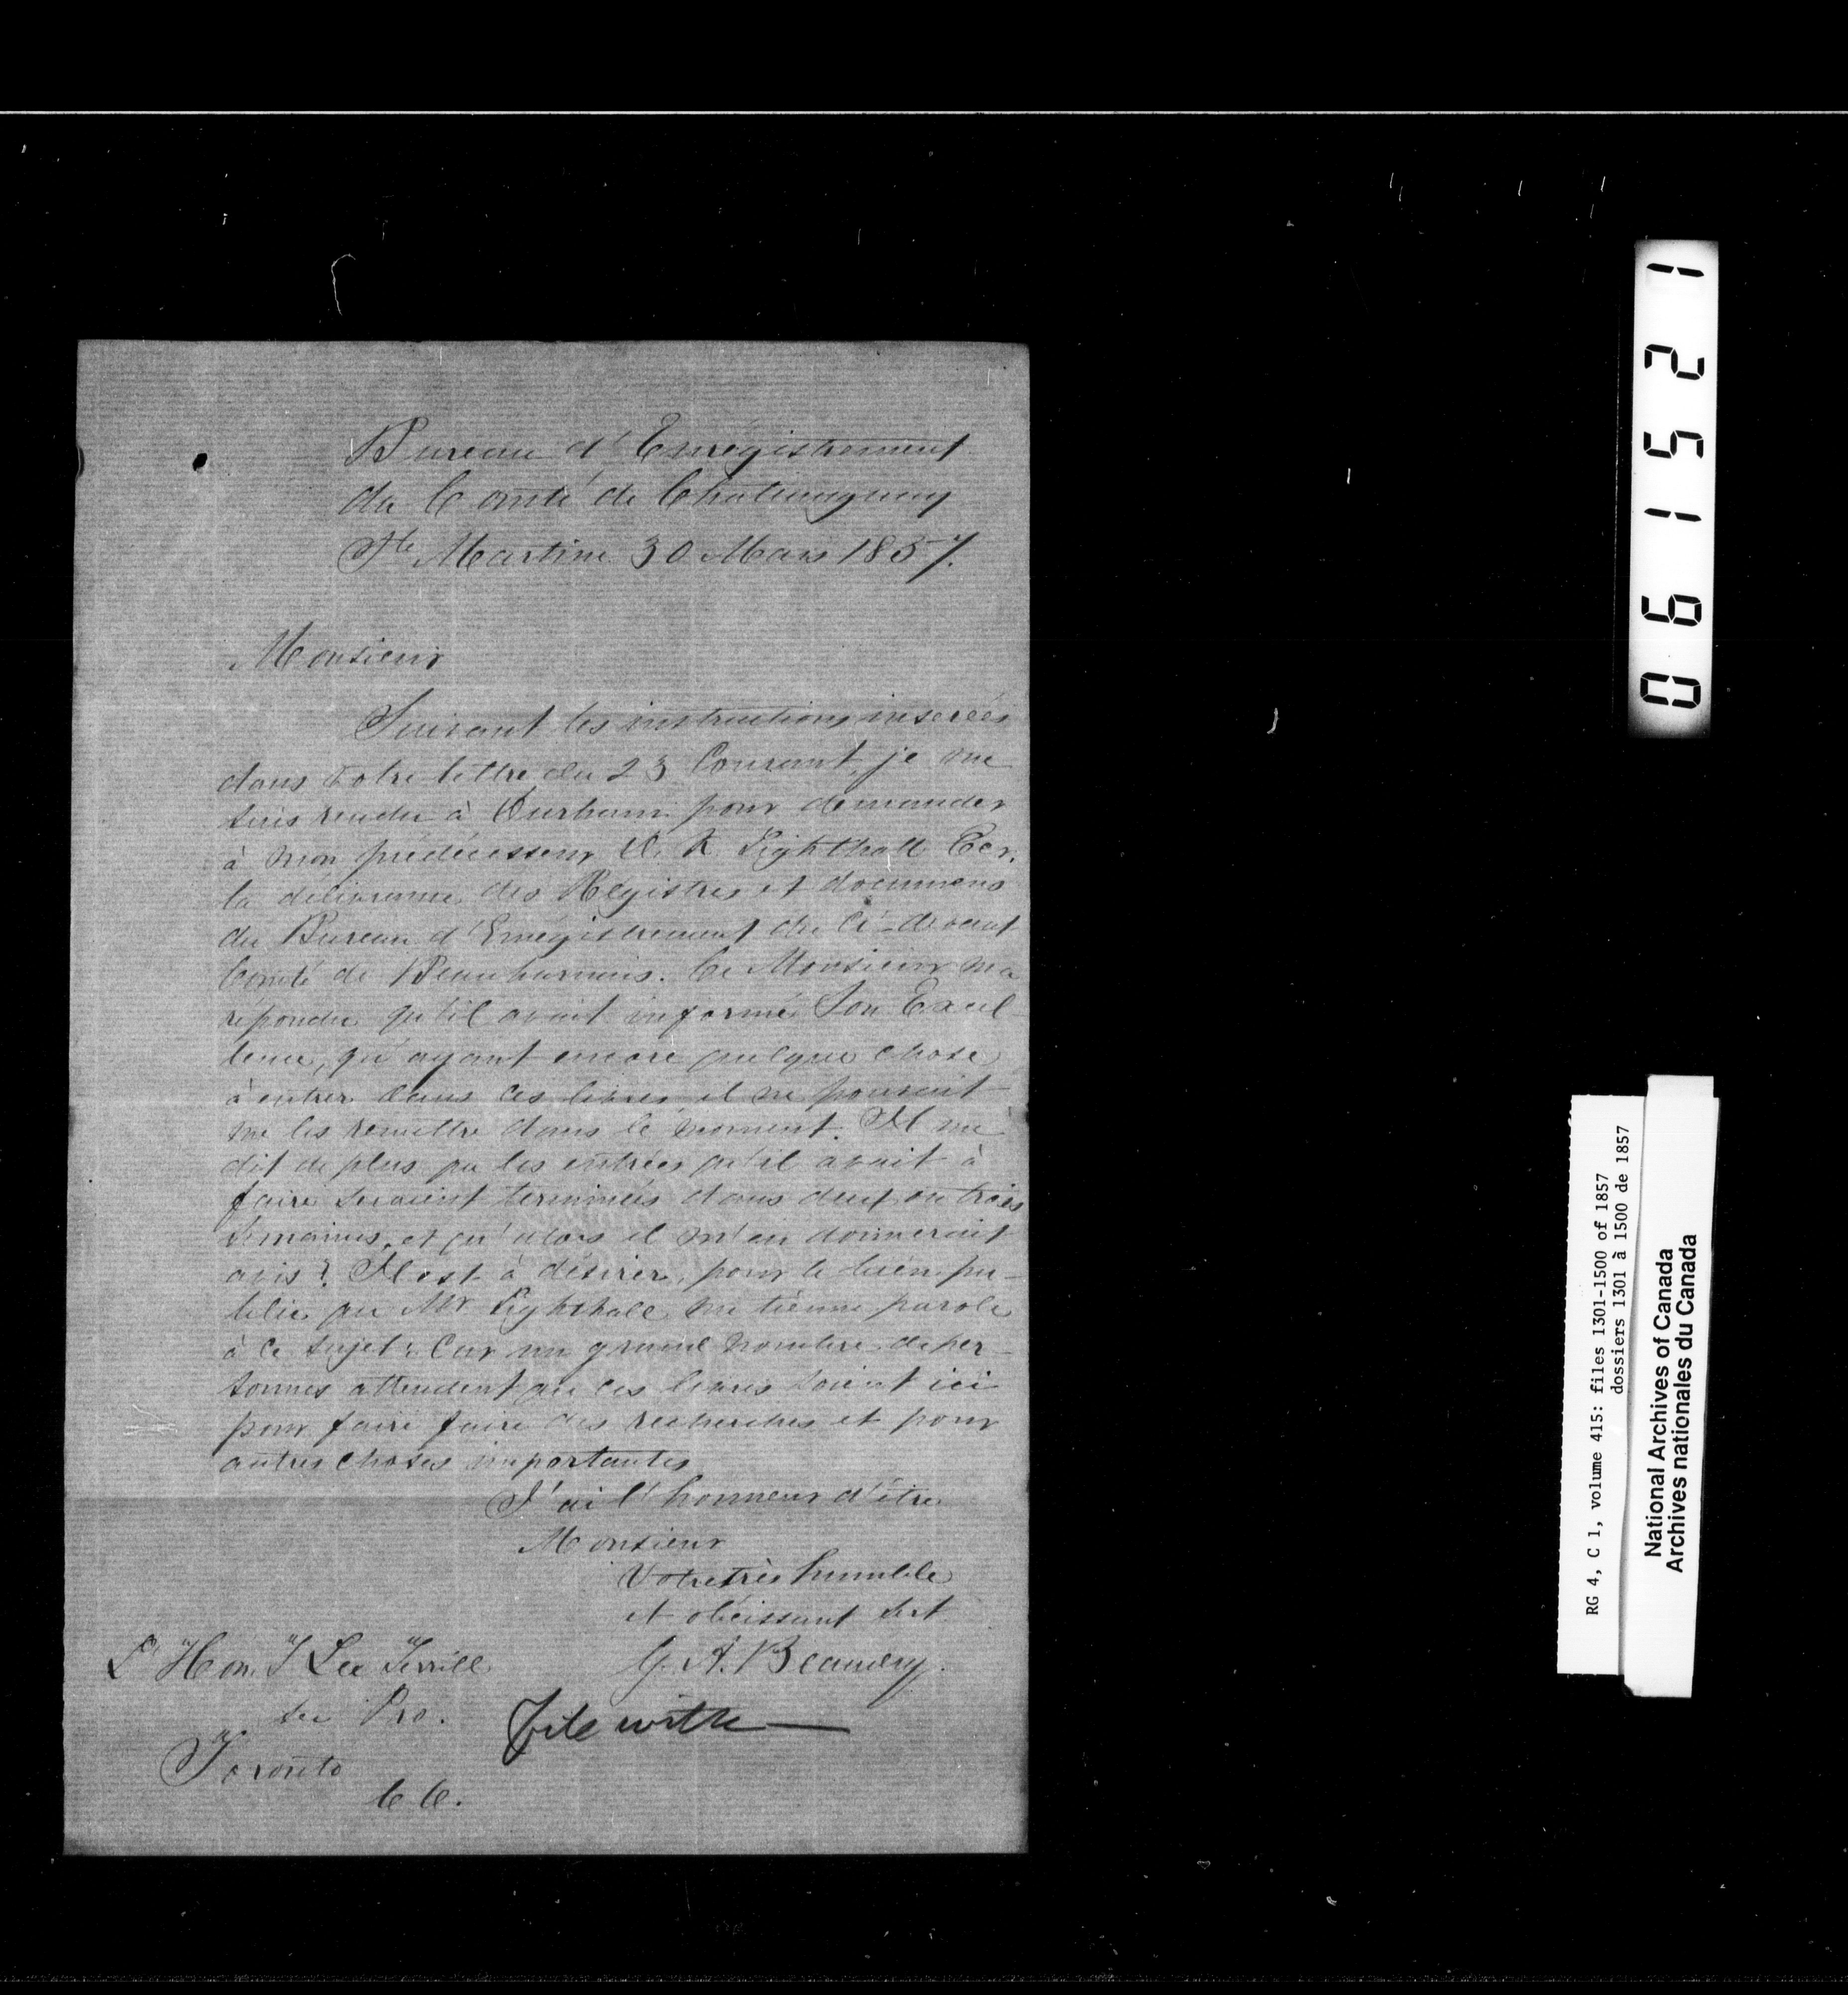 Bureau d'Enrégistrement
du Comté de Chateauguay
Ste Martine 30 Mars 1857.
Monsieur
Suivant les instructions inserées
dans Votre lettre du 23 Courant, je me
suis rendu à Durham pour demander
à mon prédécesseur D. K Lighthall Ecr.
la délivrance des Régistres et documens
du Bureau d'Enrégistrement du Ci-devant
Comté de Beauharnois. Ce Monsieur m'a
répondu qu'il avait informé Son Excel
lence, qu'ayant encore quelque chose
à entrer dans ces livres, il ne pouvait
me les remettre dans le moment. Il me
dit de plus que les entrées qu'il avait à
faire seraient terminées dans deux ou trois
Semaines, et qu'alors il m'en donnerait
avis. Il est à désirer, pour le bien pu-
blic que Mr Lighthall me tienne parole
à ce sujet: Car un grand nombre de per-
sonnes attendent que ces livres soient ici
pour faire faire des recherches et pour
autres choses importantes
J'ai l'honneur d'être
Monsieur
Votre très humble
et obéissant Svt
G. A. Beaudry.
L'Hon. T Lee Terrill
Sec Pro.
Toronto
C C.
File with —
061521
RG 4, C 1, volume 415: files 1301-1500 of 1857
dossiers 1301 à 1500 de 1857
National Archives of Canada
Archives nationales du Canada